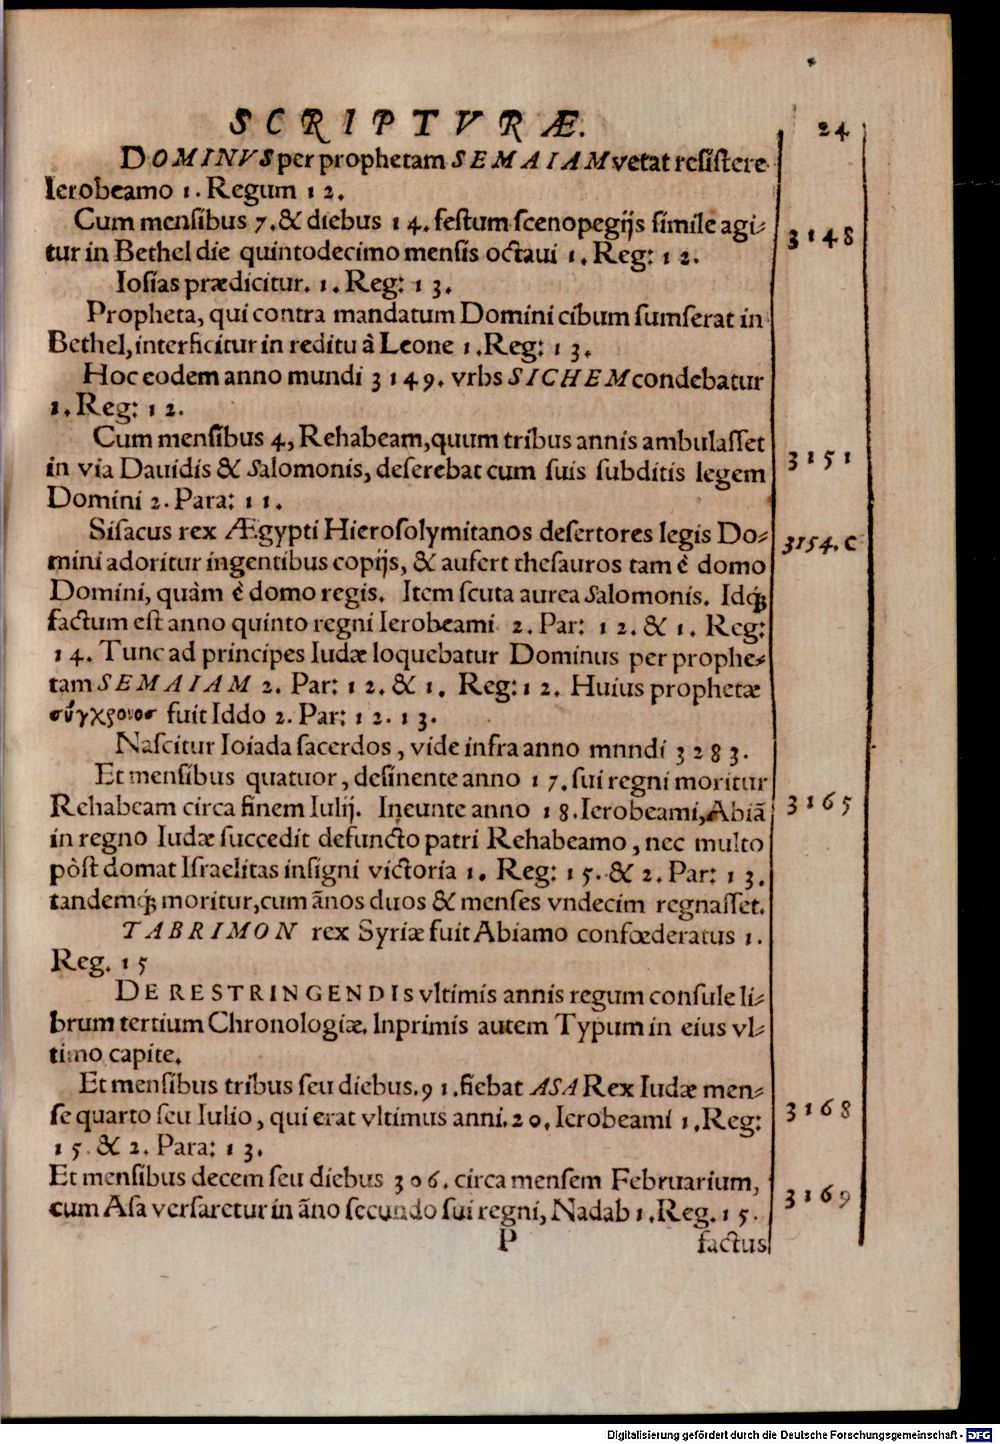 SCRIPTVRÆ. 24
DOMINVS per prophetam SEMAIAM vetat resistere
Ierobeamo 1. Regum 12.
Cum mensibus 7. & diebus 14. festum scenopegijs simile agi- 3148
tur in Bethel die quintodecimo mensis octaui 1. Reg: 12.
Iosias prædicitur. 1. Reg: 13.
Propheta, qui contra mandatum Domini cibum sumserat in
Bethel, interficitur in reditu à Leone 1. Reg: 13.
Hoc eodem anno mundi 3149. vrbs SICHEM condebatur
1. Reg: 12.
Cum mensibus 4, Rehabeam, quum tribus annis ambulasset
in via Dauidis & Salomonis, deserebat cum suis subditis legem 3151
Domini 2. Para: 11.
Sisacus rex Ægypti Hierosolymitanos desertores legis Do- 3154. c
mini adoritur ingentibus copijs, & aufert thesauros tam è domo
Domini, quàm è domo regis. Item scuta aurea Salomonis. Idq́;
factum est anno quinto regni Ierobeami 2. Par: 12. & 1. Reg:
14. Tunc ad principes Iudæ loquebatur Dominus per prophe-
tam SEMAIAM 2. Par: 12. & 1. Reg: 12. Huius prophetæ
σύγχρονοσ fuit Iddo 2. Par: 12. 13.
Nascitur Ioiada sacerdos, vide infra anno mnndi 3283.
Et mensibus quatuor, desinente anno 17. sui regni moritur
Rehabeam circa finem Iulij. Ineunte anno 18. Ierobeami, Abiā 3165
in regno Iudæ succedit defuncto patri Rehabeamo, nec multo
pòst domat Israelitas insigni victoria 1. Reg: 15. & 2. Par: 13.
tandemq́; moritur, cum ānos duos & menses vndecim regnasset.
TABRIMON rex Syriæ fuit Abiamo confœderatus 1.
Reg. 15
DE RESTRINGENDIS vltimis annis regum consule li-
brum tertium Chronologiæ. Inprimis autem Typum in eius vl-
timo capite.
Et mensibus tribus seu diebus. 91. fiebat ASA Rex Iudæ men-
se quarto seu Iulio, qui erat vltimus anni. 20. Ierobeami 1. Reg: 3168
15. & 2. Para: 13.
Et mensibus decem seu diebus 306. circa mensem Februarium,
cum Asa versaretur in āno secundo sui regni, Nadab 1. Reg. 15. 3169
P factus
Digitalisierung gefördert durch die Deutsche Forschungsgemeinschaft - DFG